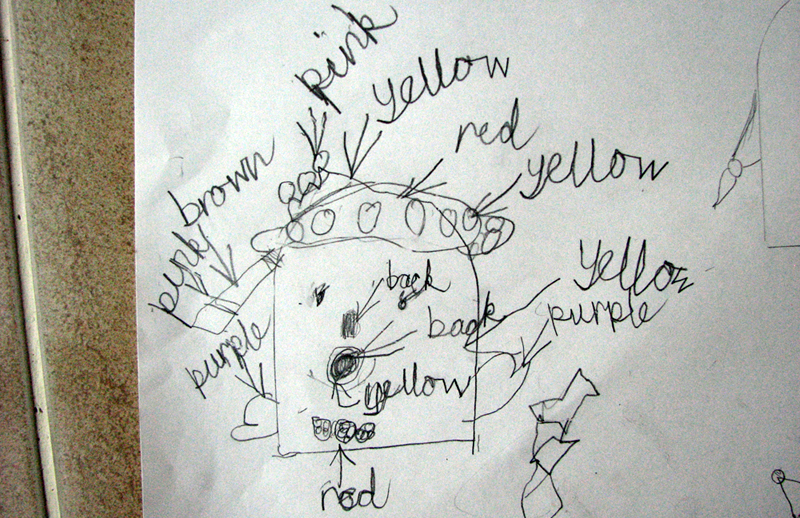 pink
yellow
red
yellow
brown
pink
yellow
back
back
purple
purple
yellow
red